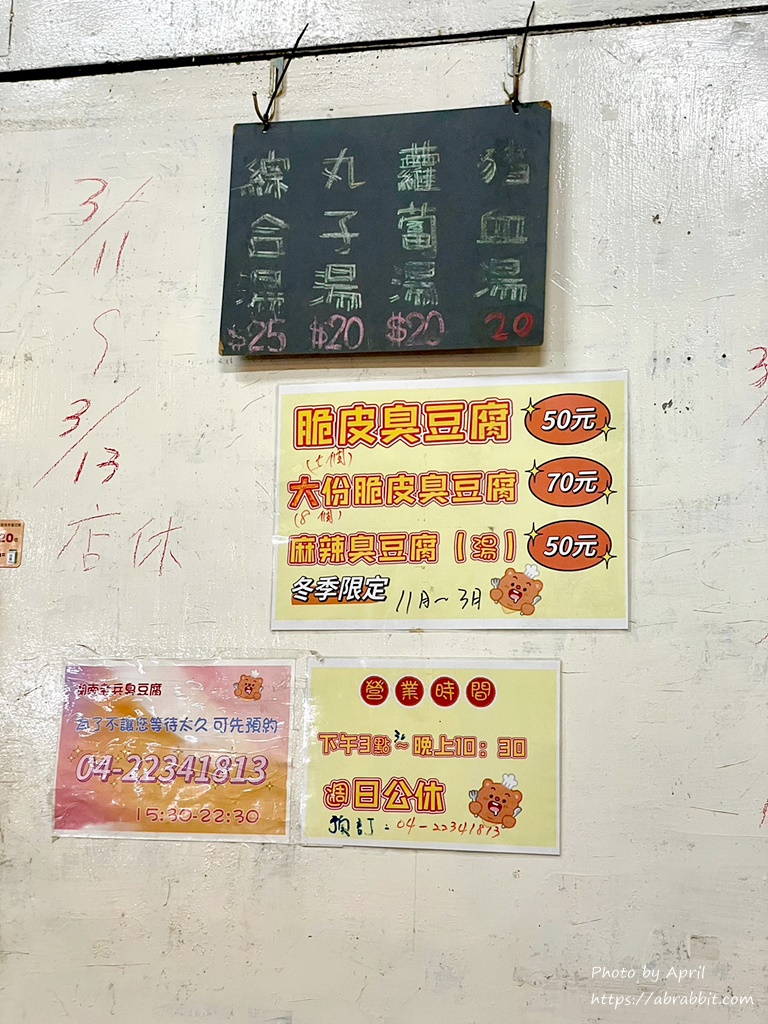 豬血湯
20
蘿蔔湯
$20
丸子湯
$20
綜合湯
$25
3/11
3/13
店休
脆皮臭豆腐 50元
大份脆皮臭豆腐 70元
(8個)
麻辣臭豆腐(湯) 50元
冬季限定 11月～3月
湖南老兵臭豆腐
為了不讓您等待太久 可先預約
04-22341813
15:30-22:30
營業時間
下午3點30～晚上10：30
週日公休
預訂：04-22341813
Photo by April
https://abrabbit.com